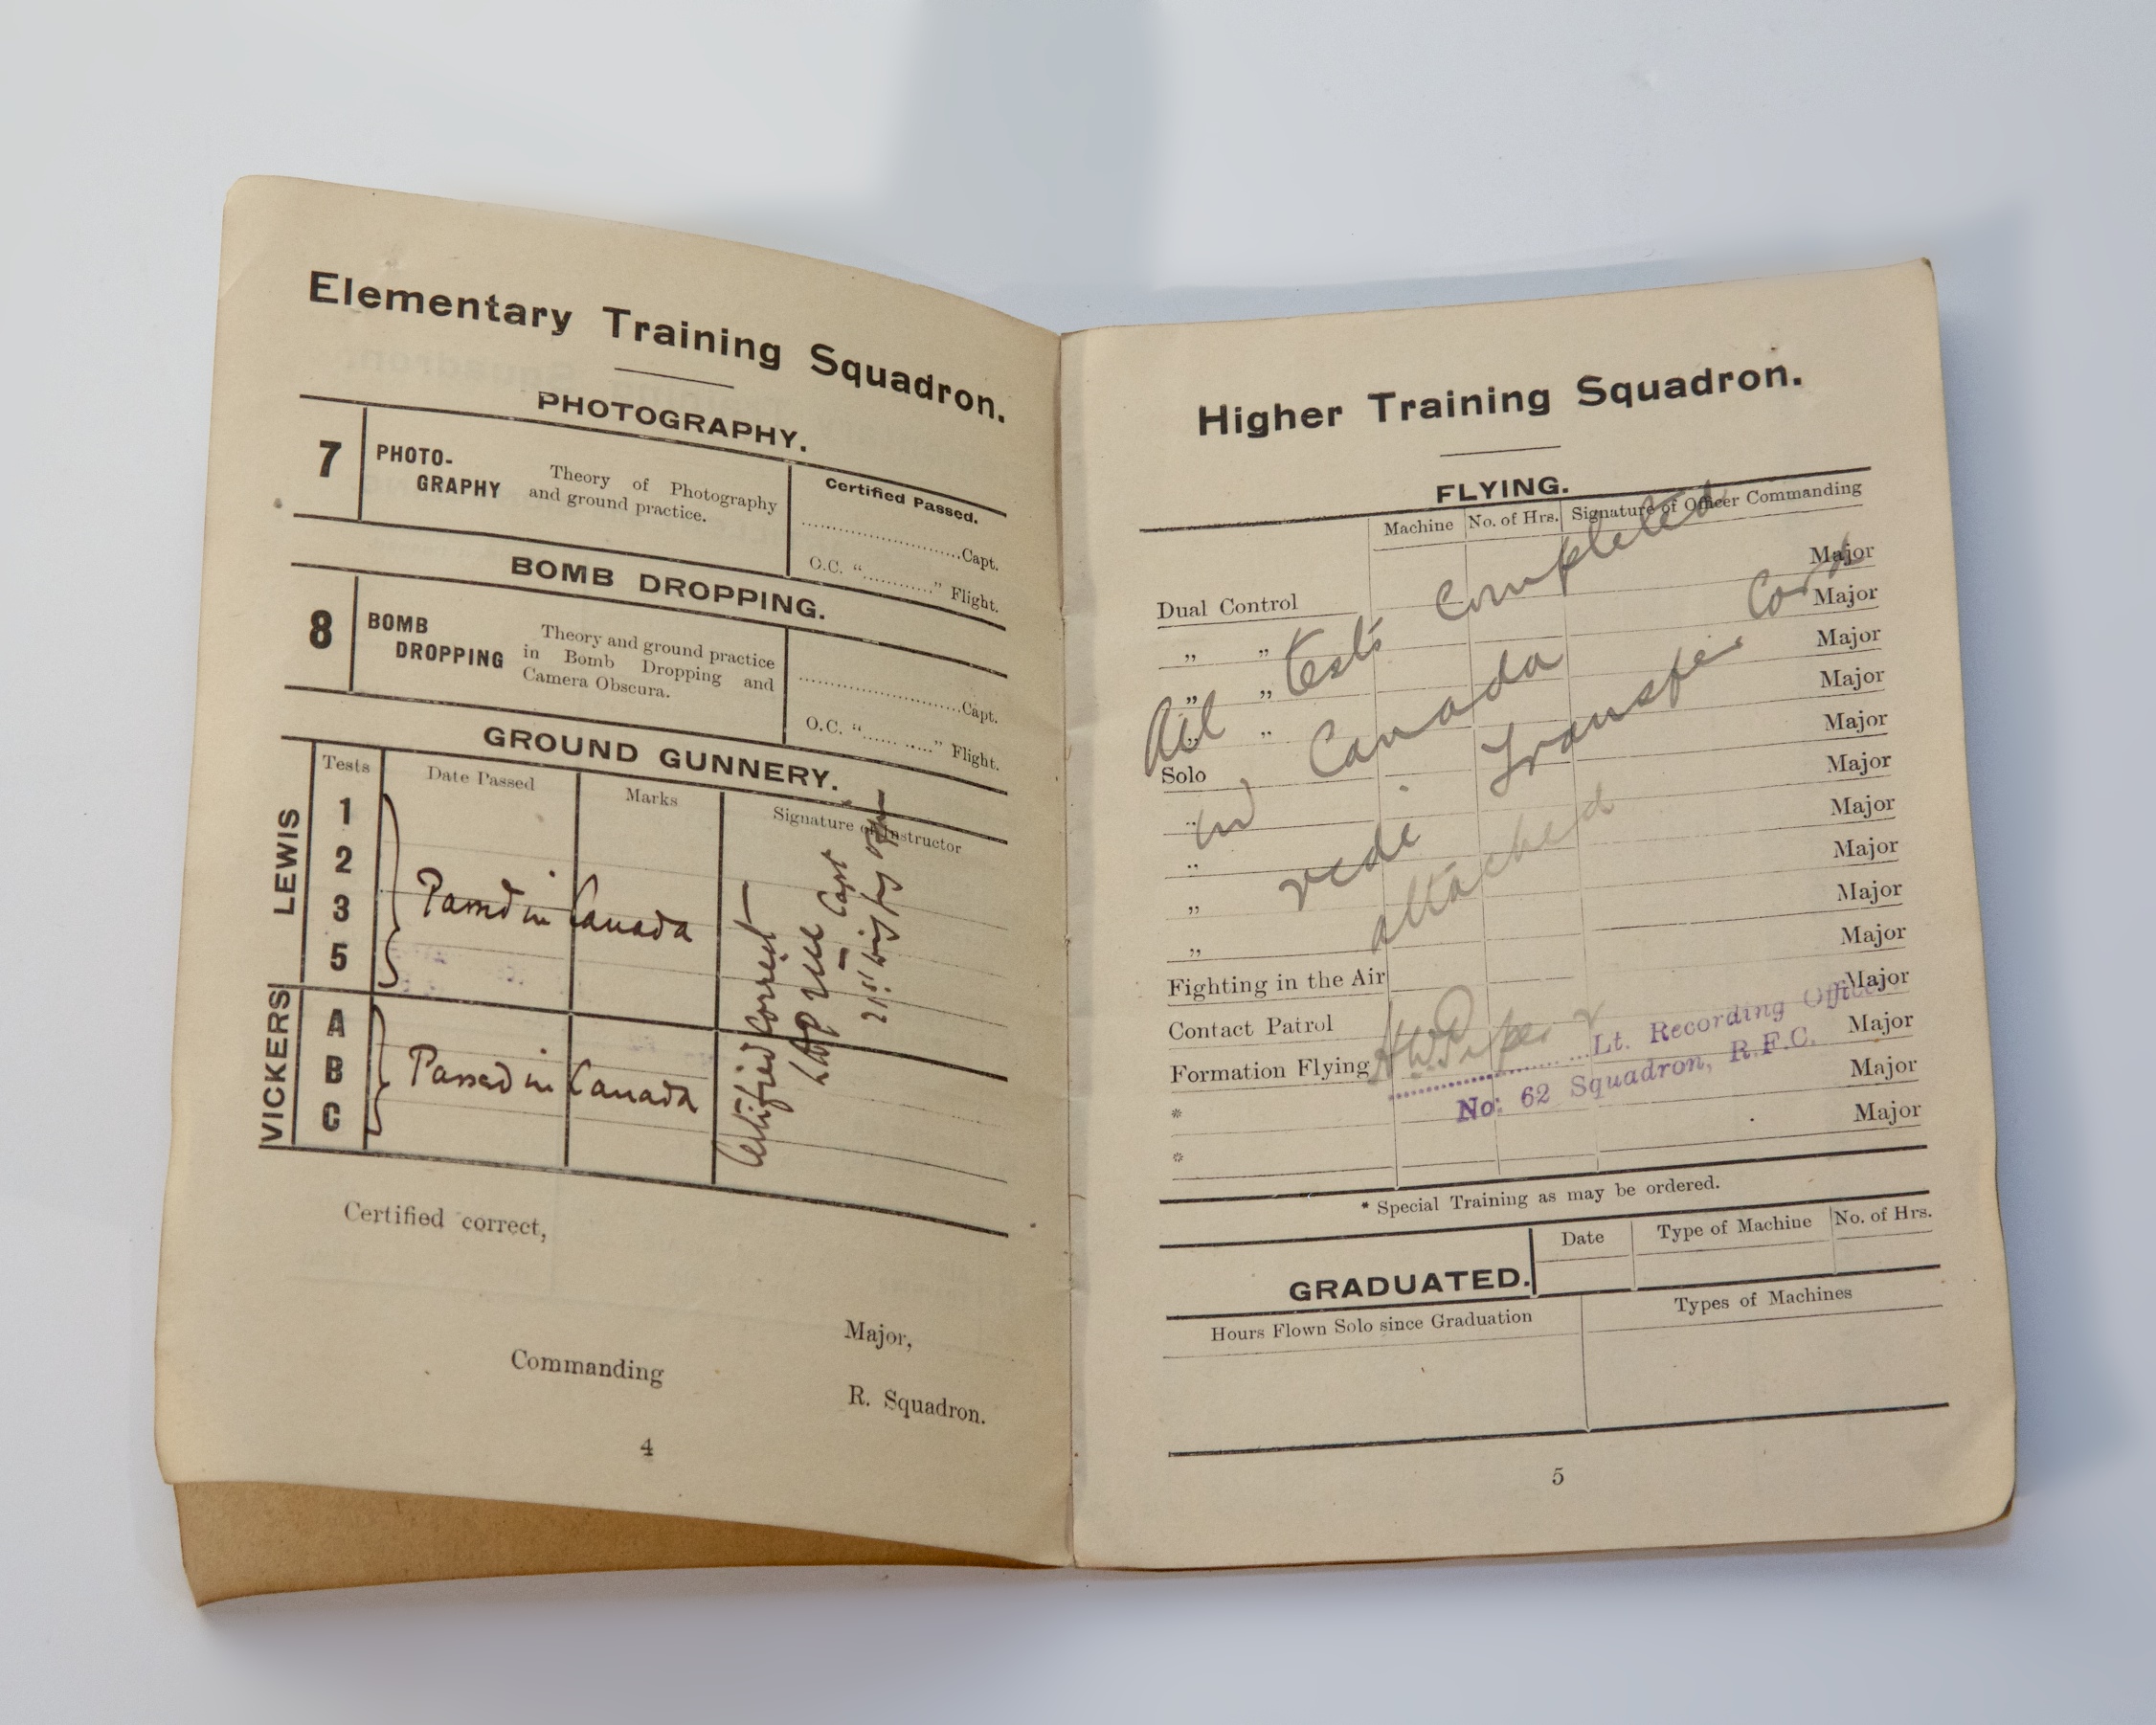 Elementary Training Squadron.
PHOTOGRAPHY.
7
PHOTO-
GRAPHY
Theory of Photography
and ground practice.
Certified Passed.
........................Capt.
O.C. “...........” Flight.
BOMB DROPPING.
8
BOMB
DROPPING
Theory and ground practice
in Bomb Dropping and
Camera Obscura.
........................Capt.
O.C. “...... .....” Flight.
GROUND GUNNERY.
Tests
Date Passed
Marks
Signature of Instructor
LEWIS
1
2
3
5
Passed in Canada
VICKERS
A
B
C
Passed in Canada
Certified Correct
Capt
21st Wing
Certified correct,
Major,
Commanding
R. Squadron.
4
Higher Training Squadron.
FLYING.
Machine
No. of Hrs.
Signature of Officer Commanding
Dual Control
Major
„ „
Major
„ „
Major
„ „
Major
Solo
Major
„
Major
„
Major
„
Major
„
Major
Major
Fighting in the Air
Major
Contact Patrol
Major
Formation Flying
Major
*
Major
*
All tests completed
in Canada
vide Transfer Card
attached
HW Piper
...Lt. Recording Officer
No: 62 Squadron, R.F.C.
* Special Training as may be ordered.
GRADUATED.
Date
Type of Machine
No. of Hrs.
Hours Flown Solo since Graduation
Types of Machines
5